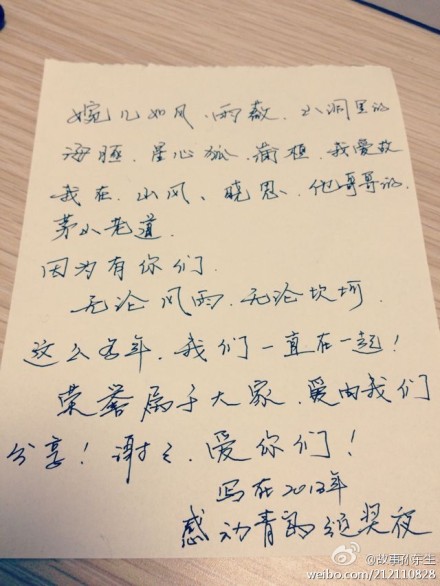 婉儿如风、雨薇、小洞里的
海胆、星心狐、蒲植、我爱故
我在、山风、晓思、他哥哥的
茅小老道、
因为有你们、
无论风雨、无论坎坷、
这么多年、我们一直在一起!
荣誉属于大家、爱由我们
分享!谢谢、爱你们!
写在2013年
感动青岛颁奖夜
@故事孙东生
weibo.com/212110828